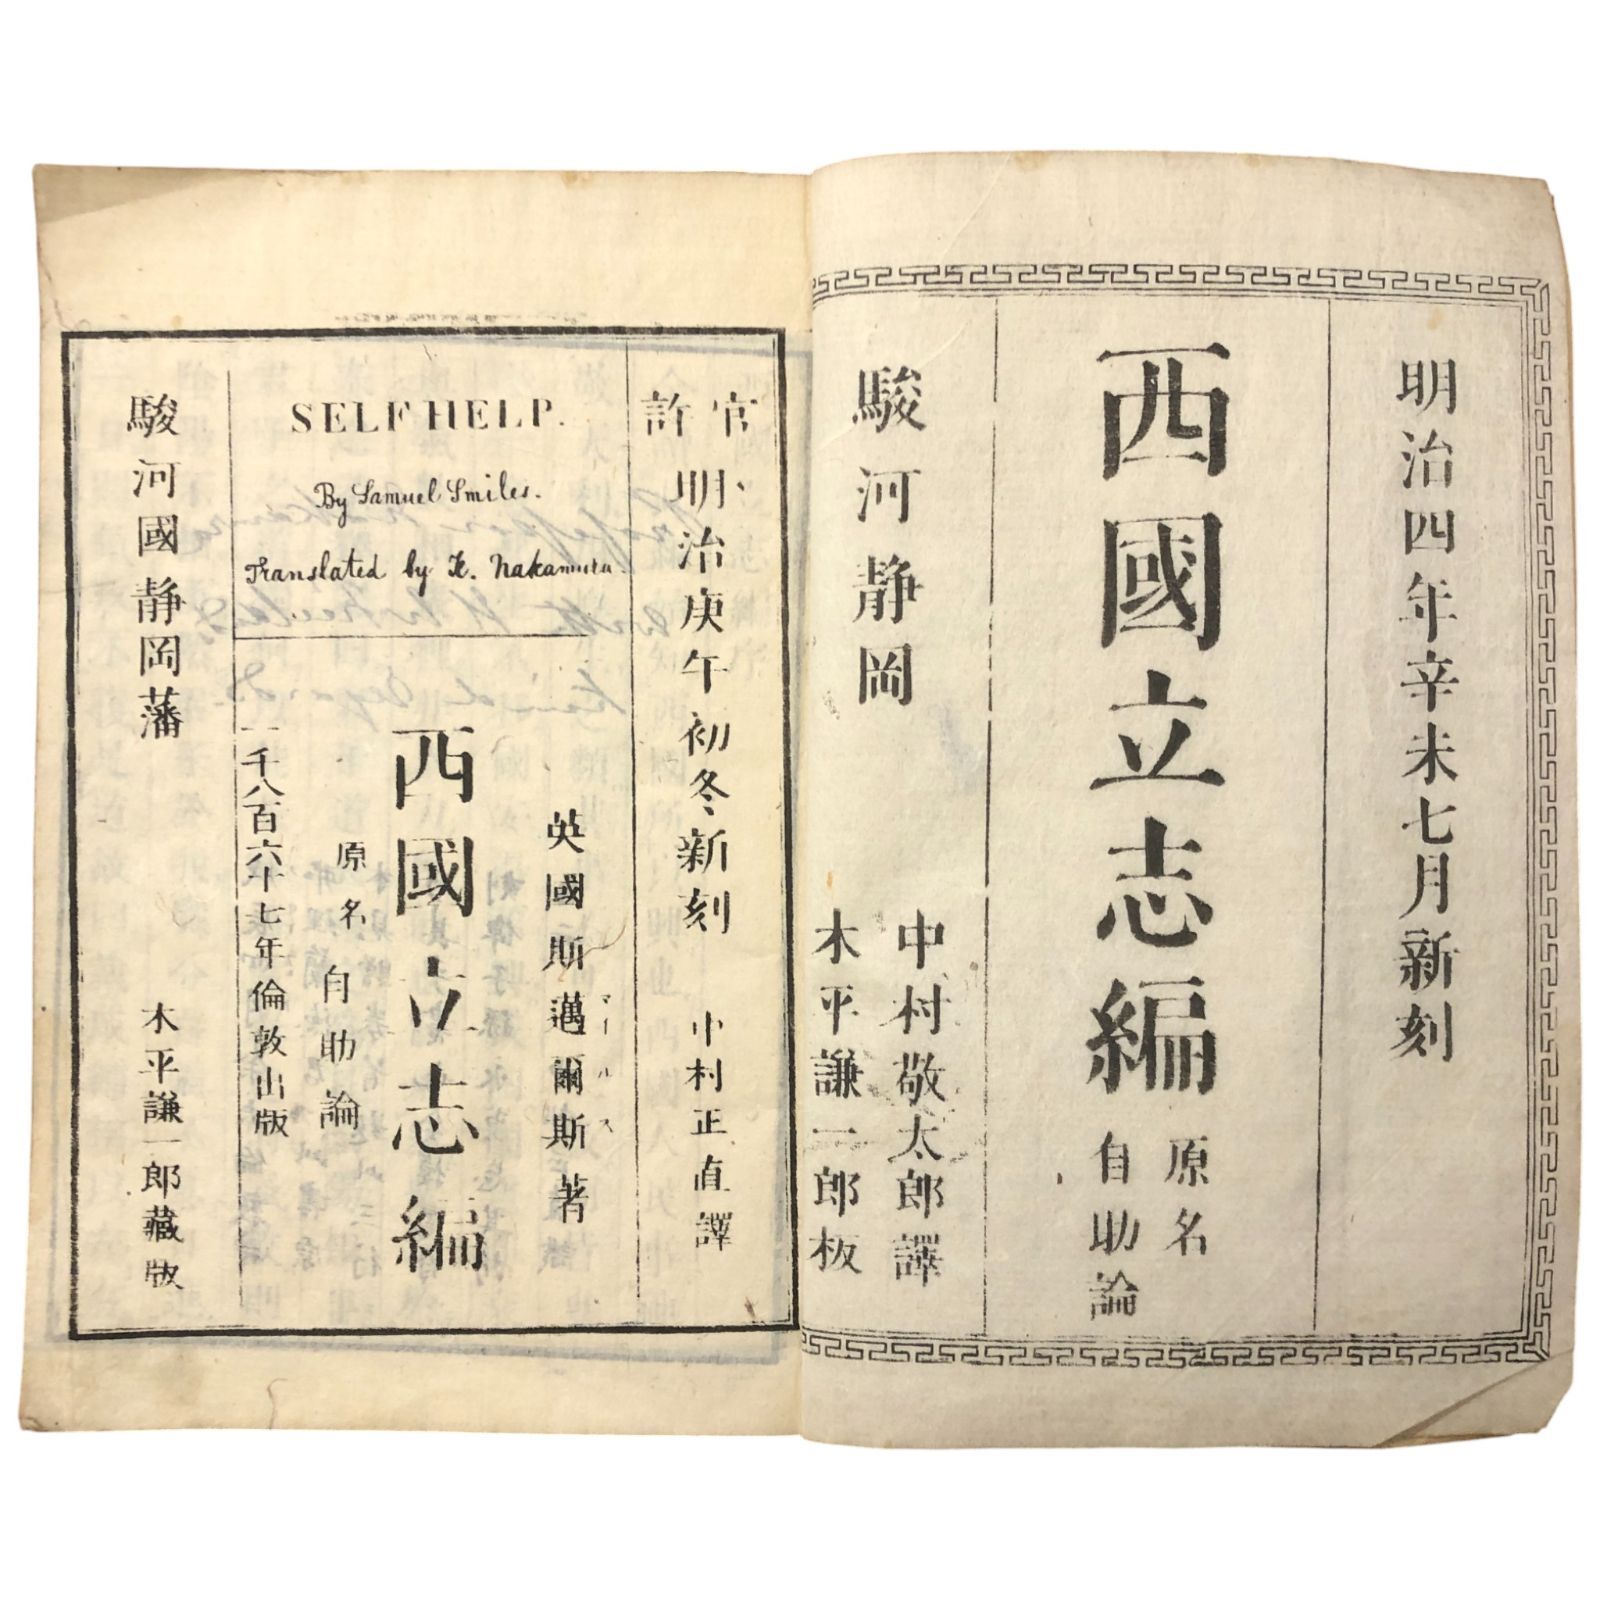 明治四年辛未七月新刻
西國立志編
原名
自助論
駿河静岡
中村敬太郎譯
木平謙一郎板
官許
明治庚午初冬新刻 中村正直譯
SELF HELP.
By Samuel Smiles.
Translated by K. Nakamura.
英國斯邁爾斯著
西國立志編
原名 自助論
一千八百六十七年倫敦出版
駿河國静岡藩
木平謙一郎藏版